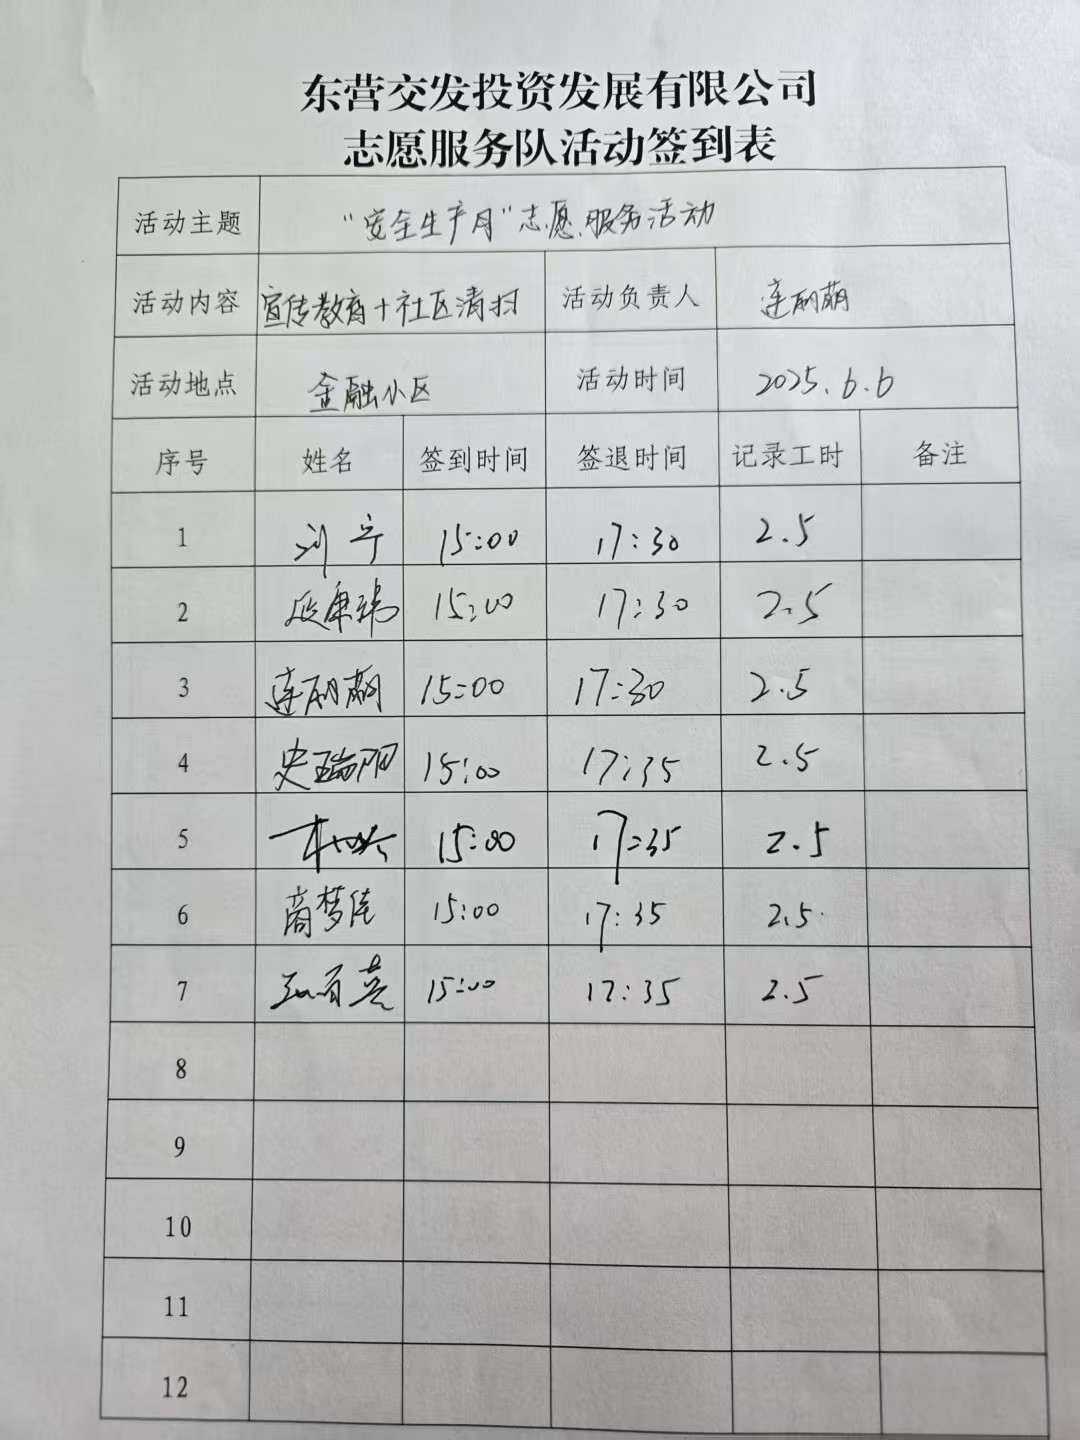 东营交发投资发展有限公司
志愿服务队活动签到表
活动主题 "安全生产月"志愿服务活动
活动内容 宣传教育+社区清扫 活动负责人 连丽萌
活动地点 金融小区 活动时间 2025.6.6
序号 姓名 签到时间 签退时间 记录工时 备注
1 刘宁 15:00 17:30 2.5
2 段康瑞 15:00 17:30 2.5
3 连丽萌 15:00 17:30 2.5
4 史瑞阳 15:00 17:35 2.5
5 15:00 17:35 2.5
6 商梦佳 15:00 17:35 2.5
7 15:00 17:35 2.5
8
9
10
11
12